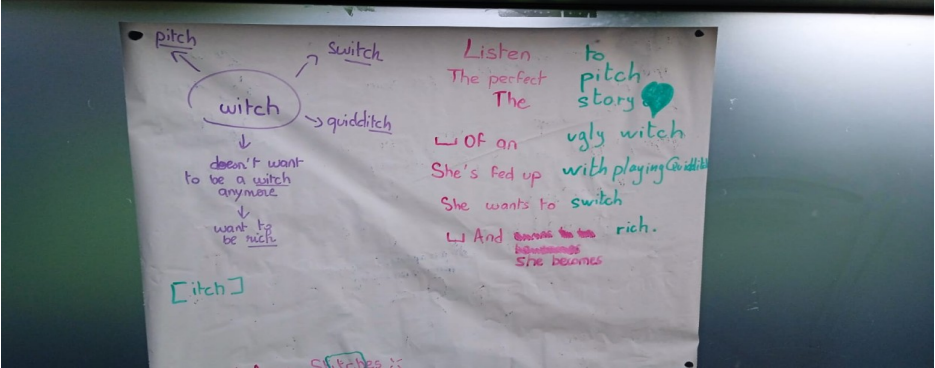 pitch
switch
witch
quidditch
doesn't want
to be a witch
anymore
want to
be rich
[itch]
Listen to
The perfect pitch
The story
Of an ugly witch
She's fed up with playing Quidditch
She wants to switch
And rich.
She becomes
Stitches